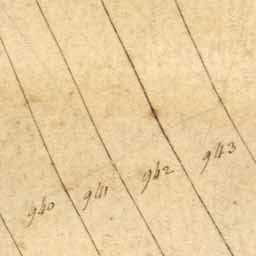 940 941 942 943